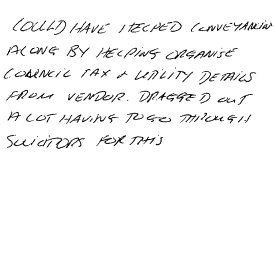 COULD HAVE HELPED CONVEYANCIN
ALONG BY HELPING ORGANISE
COUNCIL TAX + UTILITY DETAILS
FROM VENDOR. DRAGGED OUT
A LOT HAVING TO GO THROUGH
SOLICITORS FOR THIS